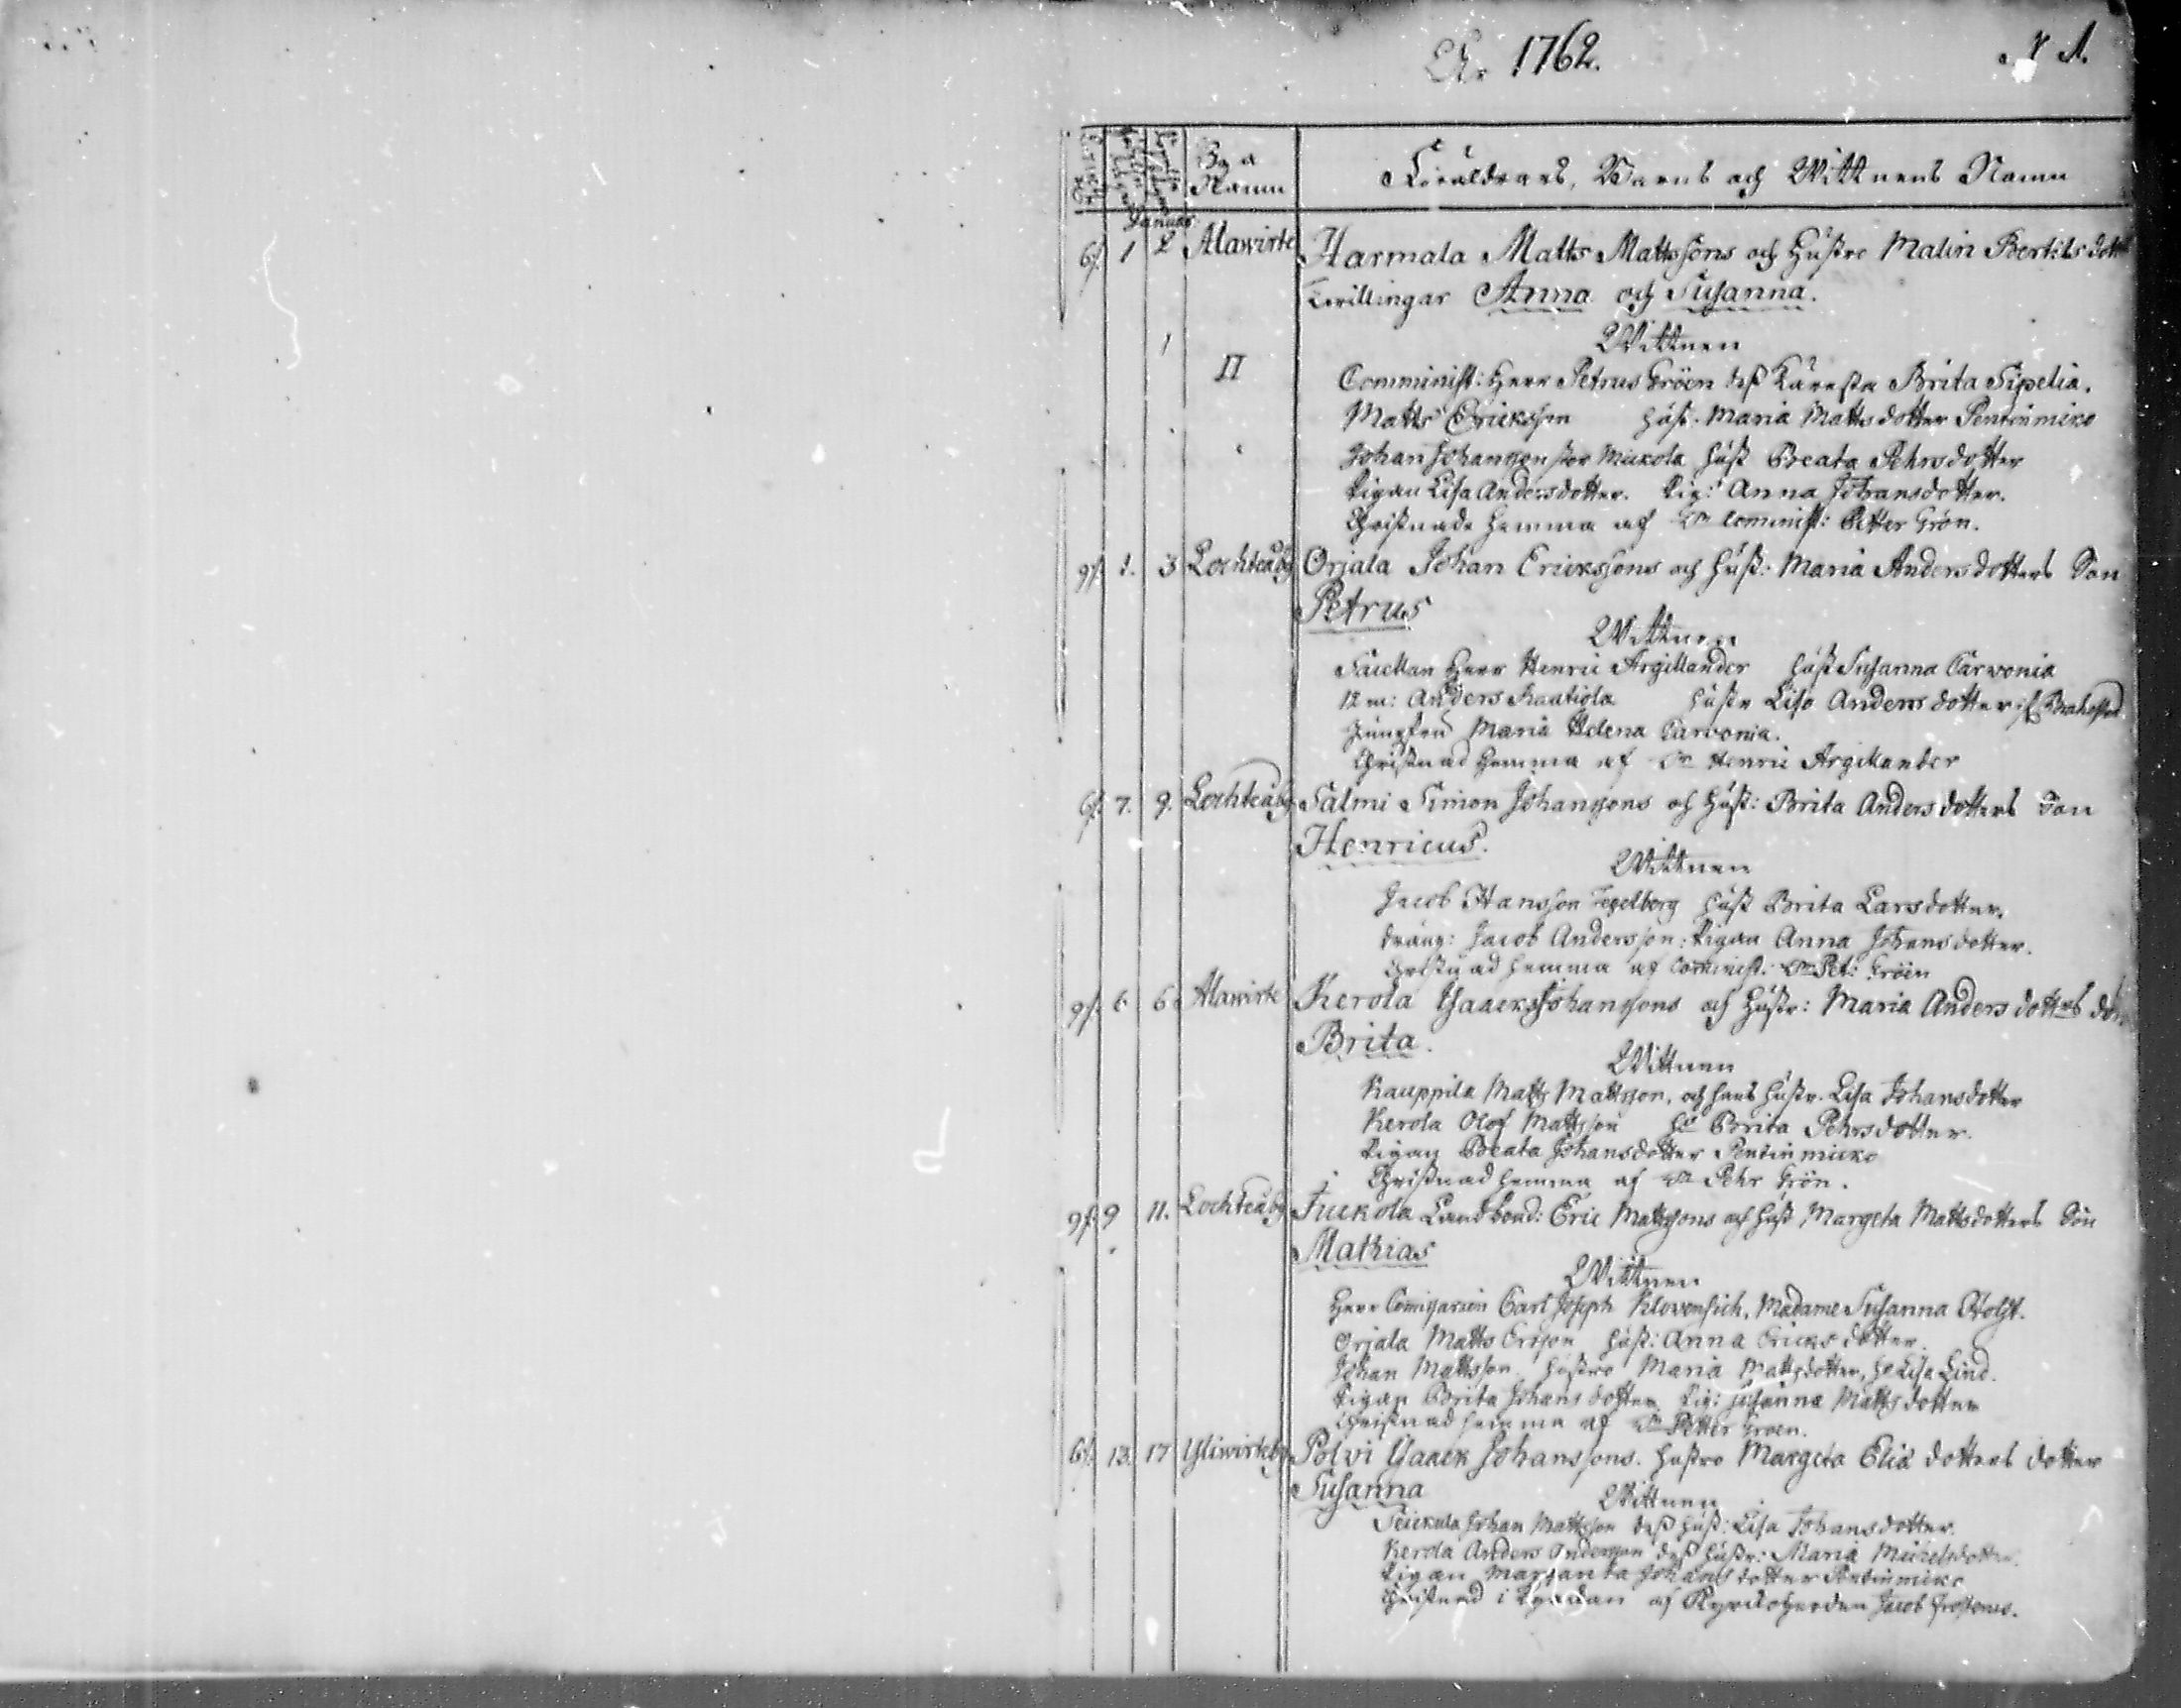 År 1762.
N 1.
By a
Namn
Föräldrars, Barns och Wittnens Namn
Januar
6/. 1 2 Alawirte Harmala Matts Mattssons och Hustro Malin Bertilsdott
Twillingar Anna och Susanna.
Wittnen
1
II
Comminist: Herr Petrus Gröen dess Käresta Brita Sipelia.
Matts Ericksson Hust. Maria Mattsdotter Pentinmicko
Johan Johansson stor Mickola Hust Beata Pehrsdotter
Pigan Lisa Andersdotter. Pig: Anna Johansdotter.
Christnade hemma af Comminist: Petter Grön.
9/. 1. 3 Lochteåby Orjala Johan Erickssons och Hust: Maria Andersdotters Son
Petrus
Wittnen
Herr Henric Argillander Hust Susanna Carvonia
12 m: Anders Raatiola Hustr Lisa Andersdotter if Brahestad
Jungfru Maria Helena Carvonia.
Christnad hemma af Henric Argillander
6/. 7. 9. Lochteåby Salmi Simon Johanssons och Hust: Brita Andersdotters Son
Henricus.
Wittnen
Jacob Hansson Tegelberg Hust Brita Larsdotter,
dräng: Jacob Andersson: Pigan Anna Johansdotter.
Christnad hemma af Cominist. Pet: Gröen
9/. 6 6 Alawirte Kerola Isaacks Johanssons och Hustr: Maria Andersdotters dot
Brita.
Wittnen
Kauppila Matts Mattsson, och hans Hustr. Lisa Johansdotter
Kerola Olof Mattsson Brita Pehrsdotter.
Pigan Beata Johansdotter Pentinmicko
Christnad hemma af Pehr Grön.
9/. 9 11. Lochteåby Juckola Landbond: Eric Mattssons och Hust Margeta Mattsdotters Son
Mathias
Wittnen
Herr Comissarien Carl Joseph Madame Susanna Holst.
Orjala Matts Ersson Hust: Anna Ericksdotter.
Johan Mattsson Hustro Maria Mattsdotter, Lisa Lind.
Pigan Brita Johansdotter Pig: Susanna Mattsdotter
Christnad hemma af Petter Groen.
6/. 13. 17 Yliwirteby Polvi Isaack Johanssons. Hustro Margeta Elisdotters dotter
Susanna
Wittnen
Johan Mattsson dess Hust: Lisa Johansdotter.
Kerola Anders Andersson dess Hustr: Maria Michelsdotter.
Pigan Margareta Johansdotter Pentinmicko
Christnad i Kyrckan af Kyrckoherden Jacob Frosterus.